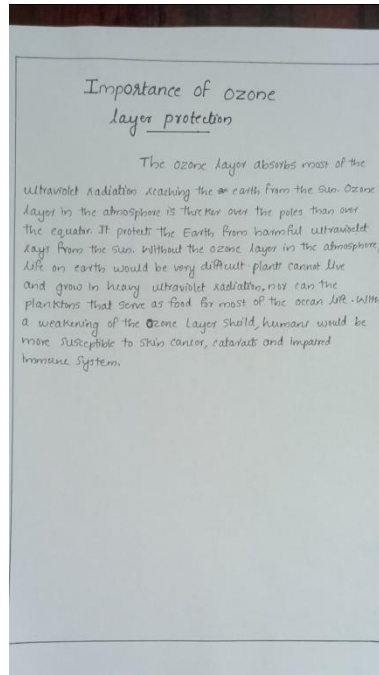 Importance of ozone
layer protection
The ozone layer absorbs most of the
ultraviolet radiation reaching the earth from the sun. Ozone
layer in the atmosphere is thicker over the poles than over
the equator. It protects the Earth from harmful ultraviolet
rays from the sun. Without the ozone layer in the atmosphere,
life on earth would be very difficult plants cannot live
and grow in heavy ultraviolet radiation, nor can the
planktons that serve as food for most of the ocean life. With
a weakening of the Ozone Layer Sheild, humans would be
more susceptible to skin cancer, cataracts and impaired
Immune System.